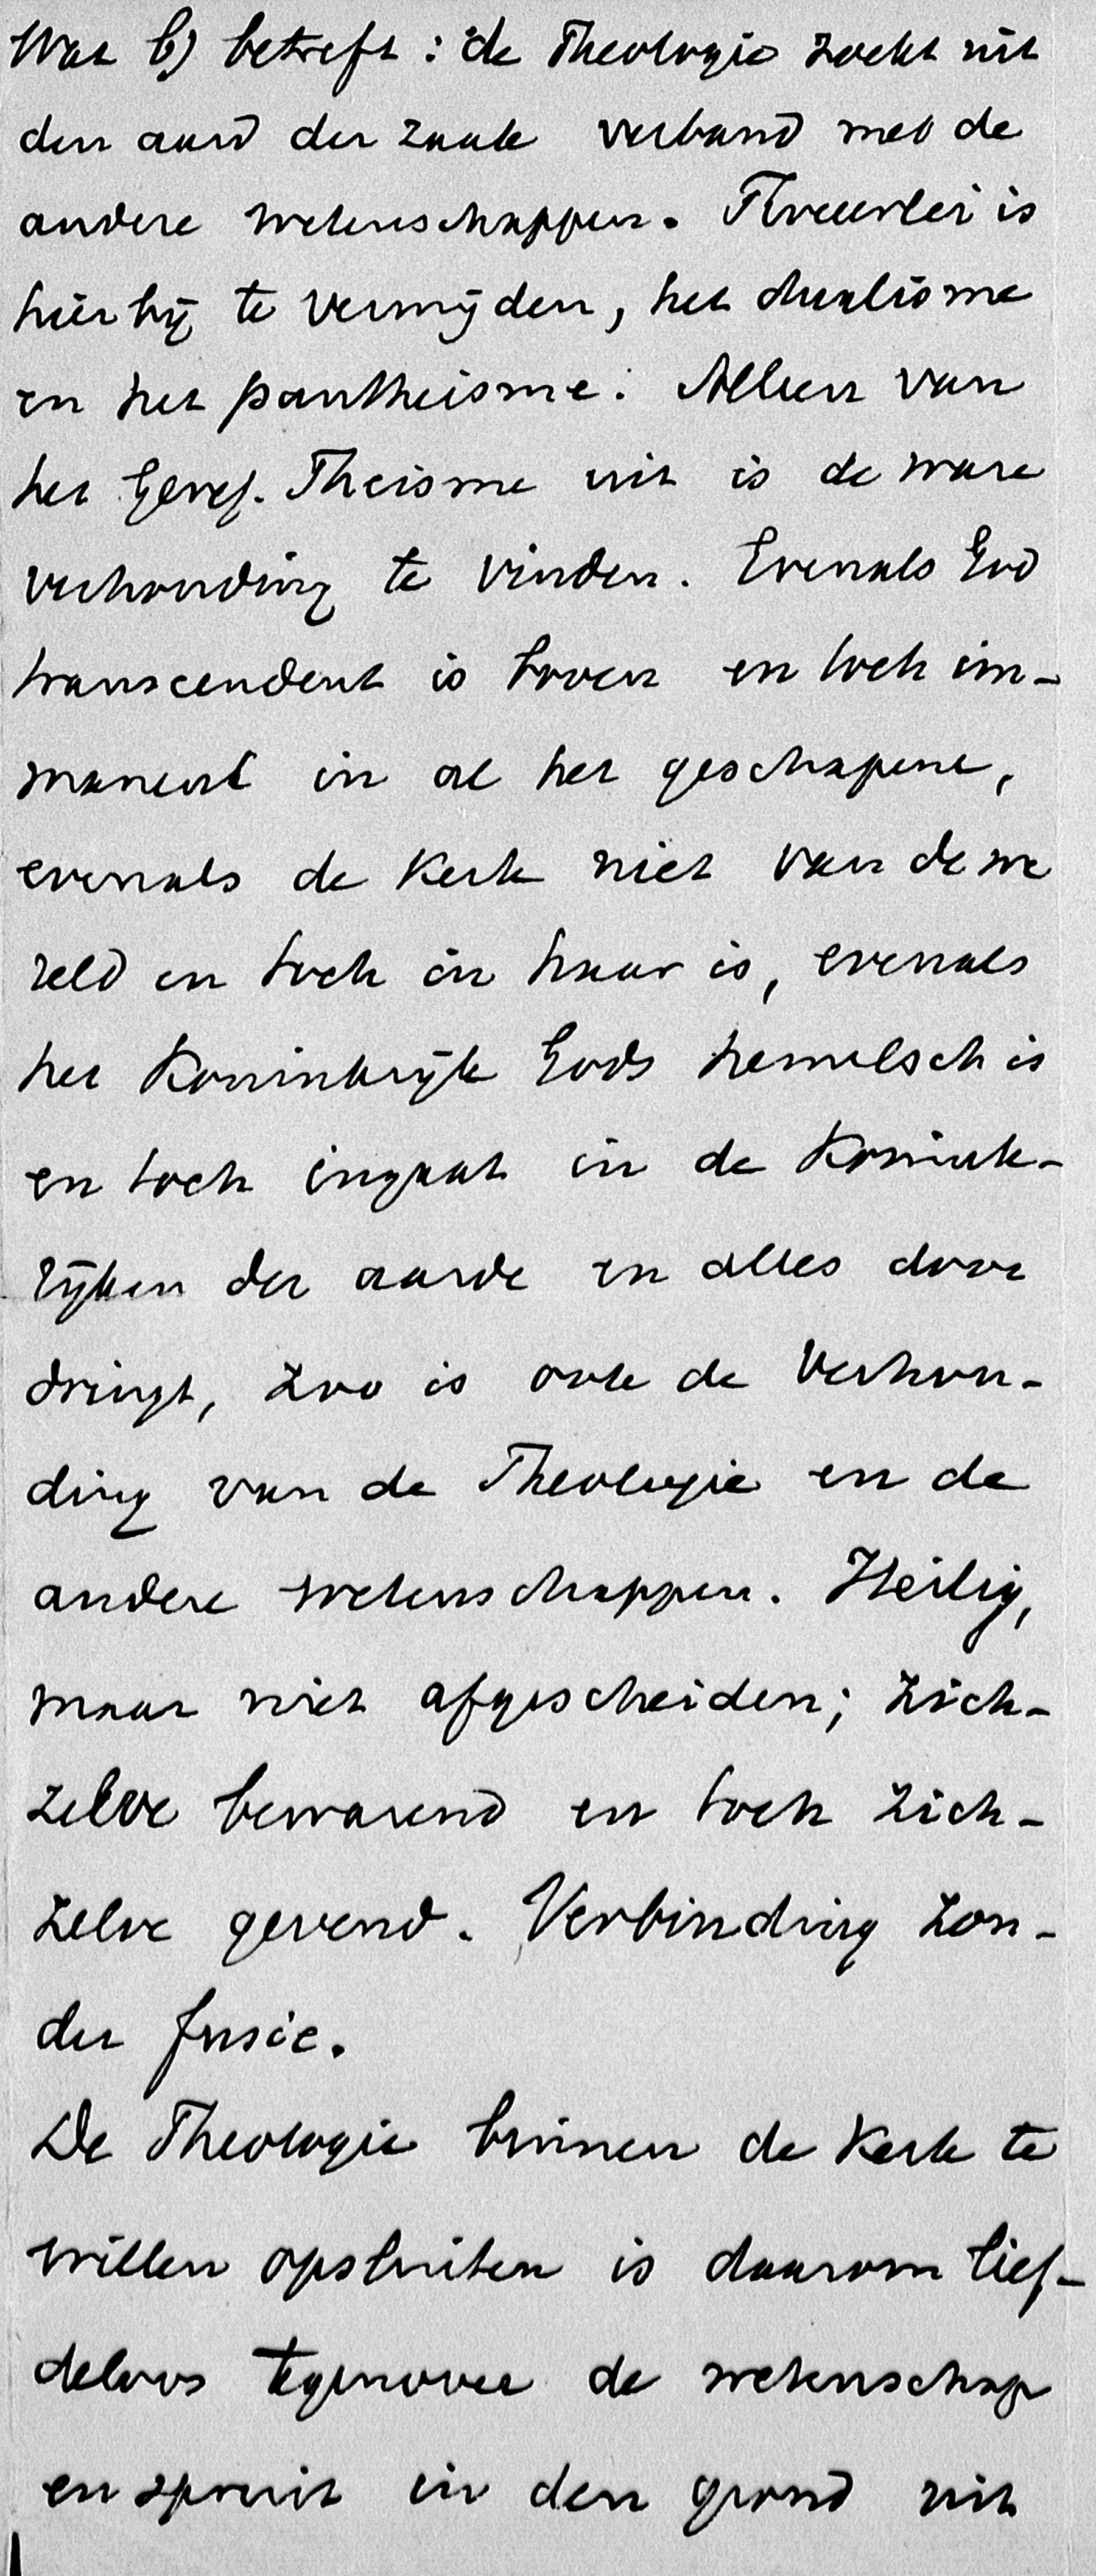 Wat b) betreft: de Theologie zoekt uit
den aard der zaak verband met de
andere wetenschappen. Tweeerlei is
hierbij te vermijden, het dualisme
en het pantheisme. Alleen van
het Geref. Theisme uit is de ware
verhouding te vinden. Evenals God
transcendent is boven en toch im-
manent in al het geschapene,
evenals de Kerk niet van de we
reld en toch in haar is, evenals
het Koninkrijk Gods hemelsch is
en toch ingaat in de Konink-
rijken der aarde en alles door
dringt, zoo is ook de verhou-
ding van de Theologie en de
andere wetenschappen. Heilig,
maar niet afgescheiden; zich-
zelve bewarend en toch zich-
zelve gevend. Verbinding zon-
der fusie.
De Theologie binnen de Kerk te
willen opsluiten is daarom lief-
deloos tegenover de wetenschap
en spruit in den grond uit